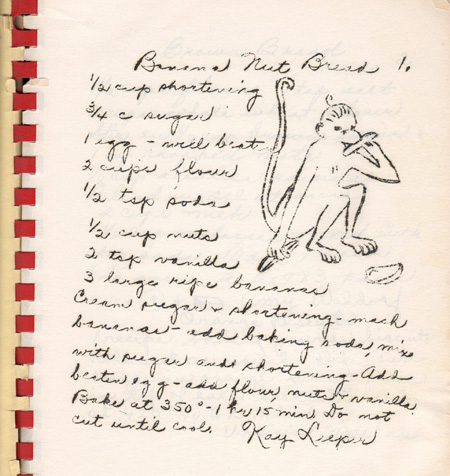 Banana Nut Bread 1.
1/2 cup shortening
3/4 c sugar
1 egg - well beat
2 cups flour
1/2 tsp soda
1/2 cup nuts
2 tsp vanilla
3 large ripe bananas
Cream sugar & shortening - mash
bananas - add baking soda, mix
with sugar and shortening - Add
beaten egg - add flour, nuts & vanilla
Bake at 350° - 1 hr 15 min Do not
cut until cool. Kay